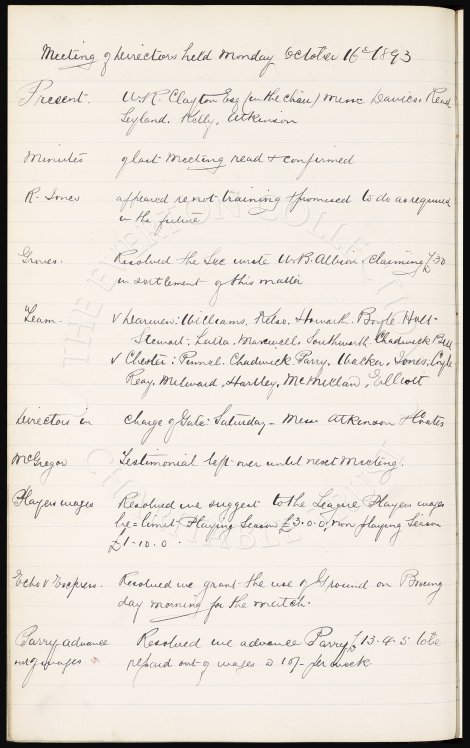 Meeting of Directors held Monday October 16th 1893
Present. W.R. Clayton Esq (in the chair) Messrs Davies. Read
Leyland. Kelly, Atkinson
Minutes of last Meeting read & confirmed
R. Jones appeared re not training & promised to do as required
in the future
Groves. Resolved the Sec write W.B. Albion claiming £30
in settlement of this matter
Team. v Darwen: Williams, Kelso. Howarth. Boyle Holt
Stewart. Latta. Maxwell, Southworth. Chadwick Bell
v Chester: Pinnel. Chadwick. Parry. Walker, Jones, Coyle
Reay, Milward, Hartley, McMillan, Elliott
Directors in charge of Gate: Saturday - Messrs Atkinson & Coates
McGregor Testimonial left over until next Meeting.
Players wages Resolved we suggest to the League Players wages
be = limit Playing Season £3.0.0, non playing Season
£1-10.0
Echo v Express. Resolved we grant the use of Ground on Boxing
day morning for the match.
Parry advance Resolved we advance Parry £13-4-5 to be
out of wages repaid out of wages @ 10/- per week
THE EVERTON COLLECTION
CHARITABLE TRUST